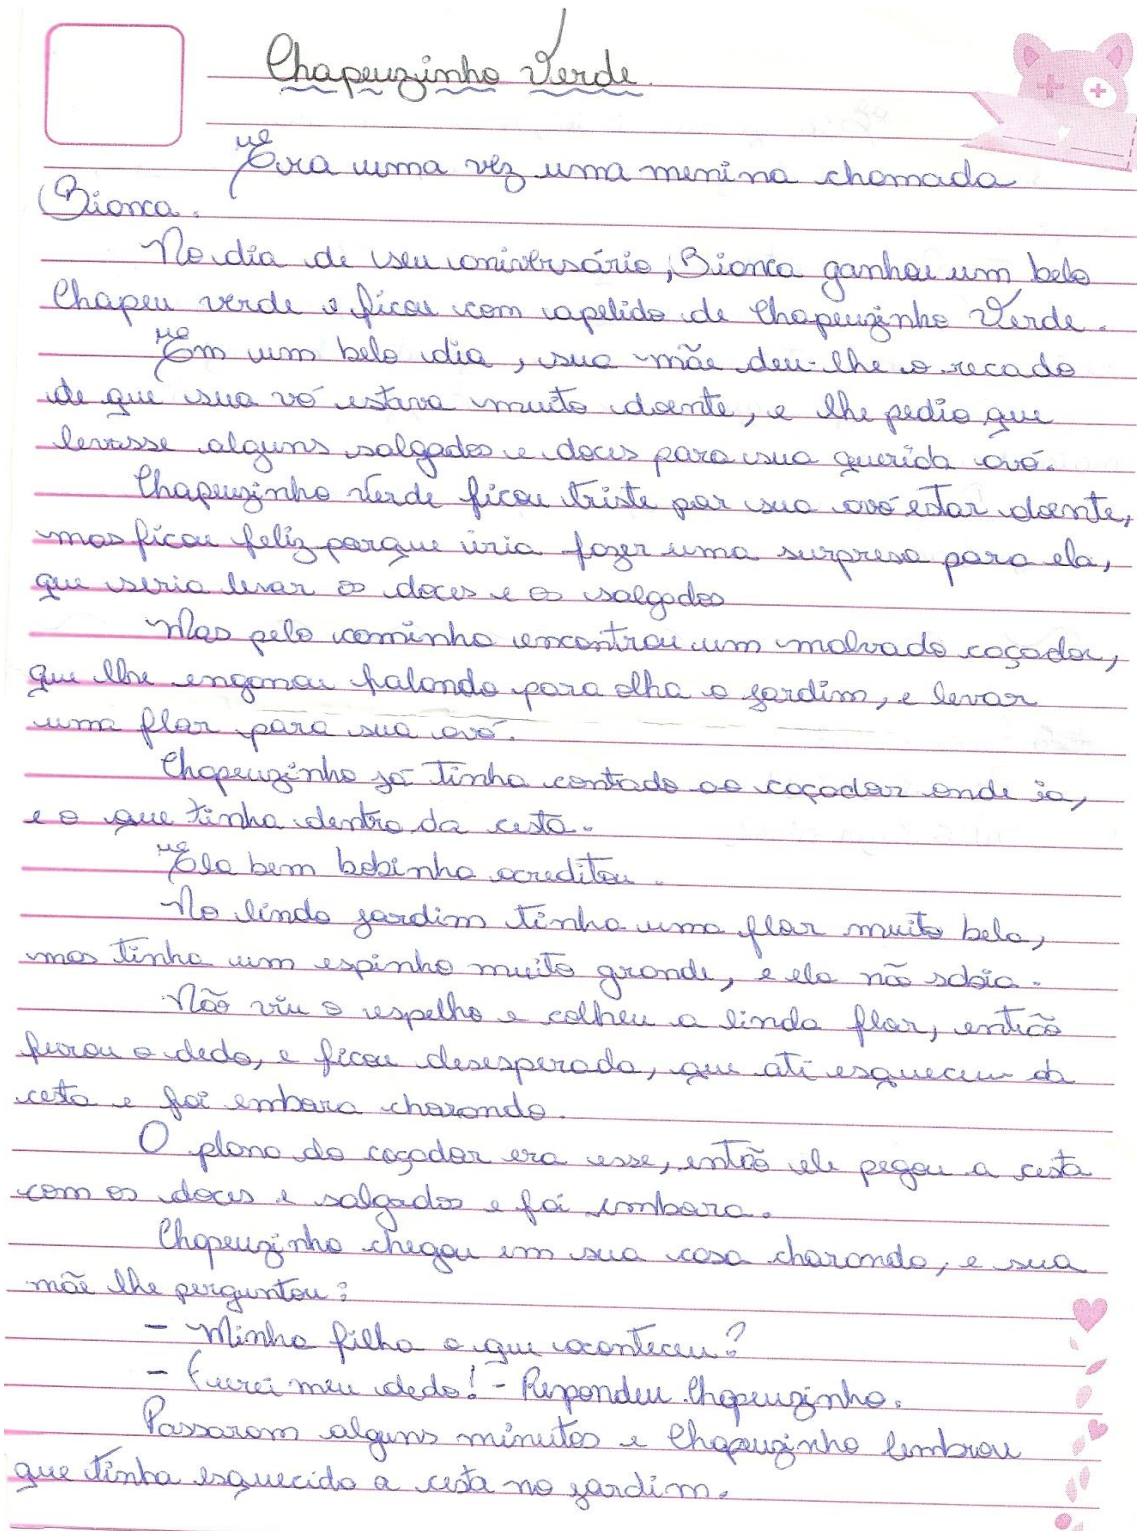 Chapeuzinho Verde
Era uma vez uma menina chamada
Bianca.
No dia de seu aniversário, Bianca ganhou um belo
Chapeu verde e ficou com apelido de Chapeuzinho Verde.
Em um belo dia, sua mãe deu-lhe o recado
de que sua vó estava muito doente, e lhe pedio que
levasse alguns salgados e doces para sua querida avó.
Chapeuzinho Verde ficou triste por sua avó estar doente,
mas ficou feliz porque iria fazer uma surpresa para ela,
que seria levar os doces e os salgados
Mas pelo caminho encontrou um malvado caçador,
que lhe enganou falando para olha o jardim, e levar
uma flor para sua avó.
Chapeuzinho já tinha contado ao caçador onde ia,
e o que tinha dentro da cesta.
Ela bem bobinha acreditou.
No lindo jardim tinha uma flor muito bela,
mas tinha um espinho muito grande, e ela não sabia.
Não viu o espelho e colheu a linda flor, então
furou o dedo, e ficou desesperada, que até esqueceu da
cesta e foi embora chorando.
O plano do caçador era esse, então ele pegou a cesta
com os doces e salgados e foi embora.
Chapeuzinho chegou em sua casa chorando, e sua
mãe lhe perguntou:
- Minha filha o que aconteceu?
- Furei meu dedo! - Respondeu Chapeuzinho.
Passaram alguns minutos e Chapeuzinho lembrou
que tinha esquecido a cesta no jardim.